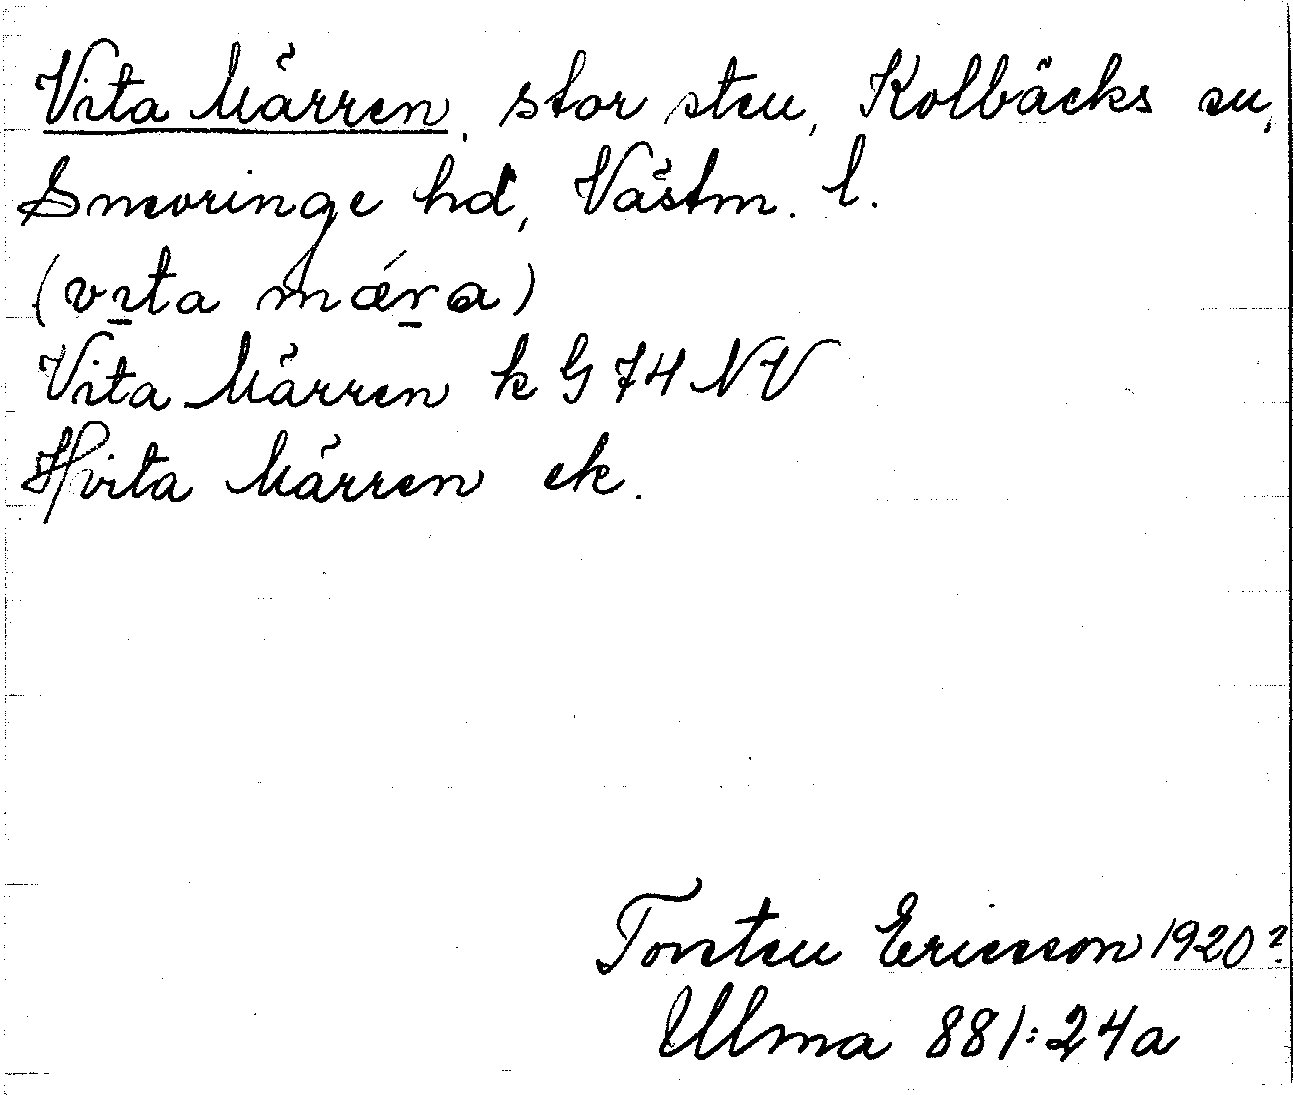 Vita Märren, stor sten, Kolbäcks sn,
Snevringe hd, Västm. l.
(vı̱ta mǽṟa)
Vita Märren k G 74 NV
Hvita Märren ek.
Torsten Ericsson 1920?
Ulma 881:24a